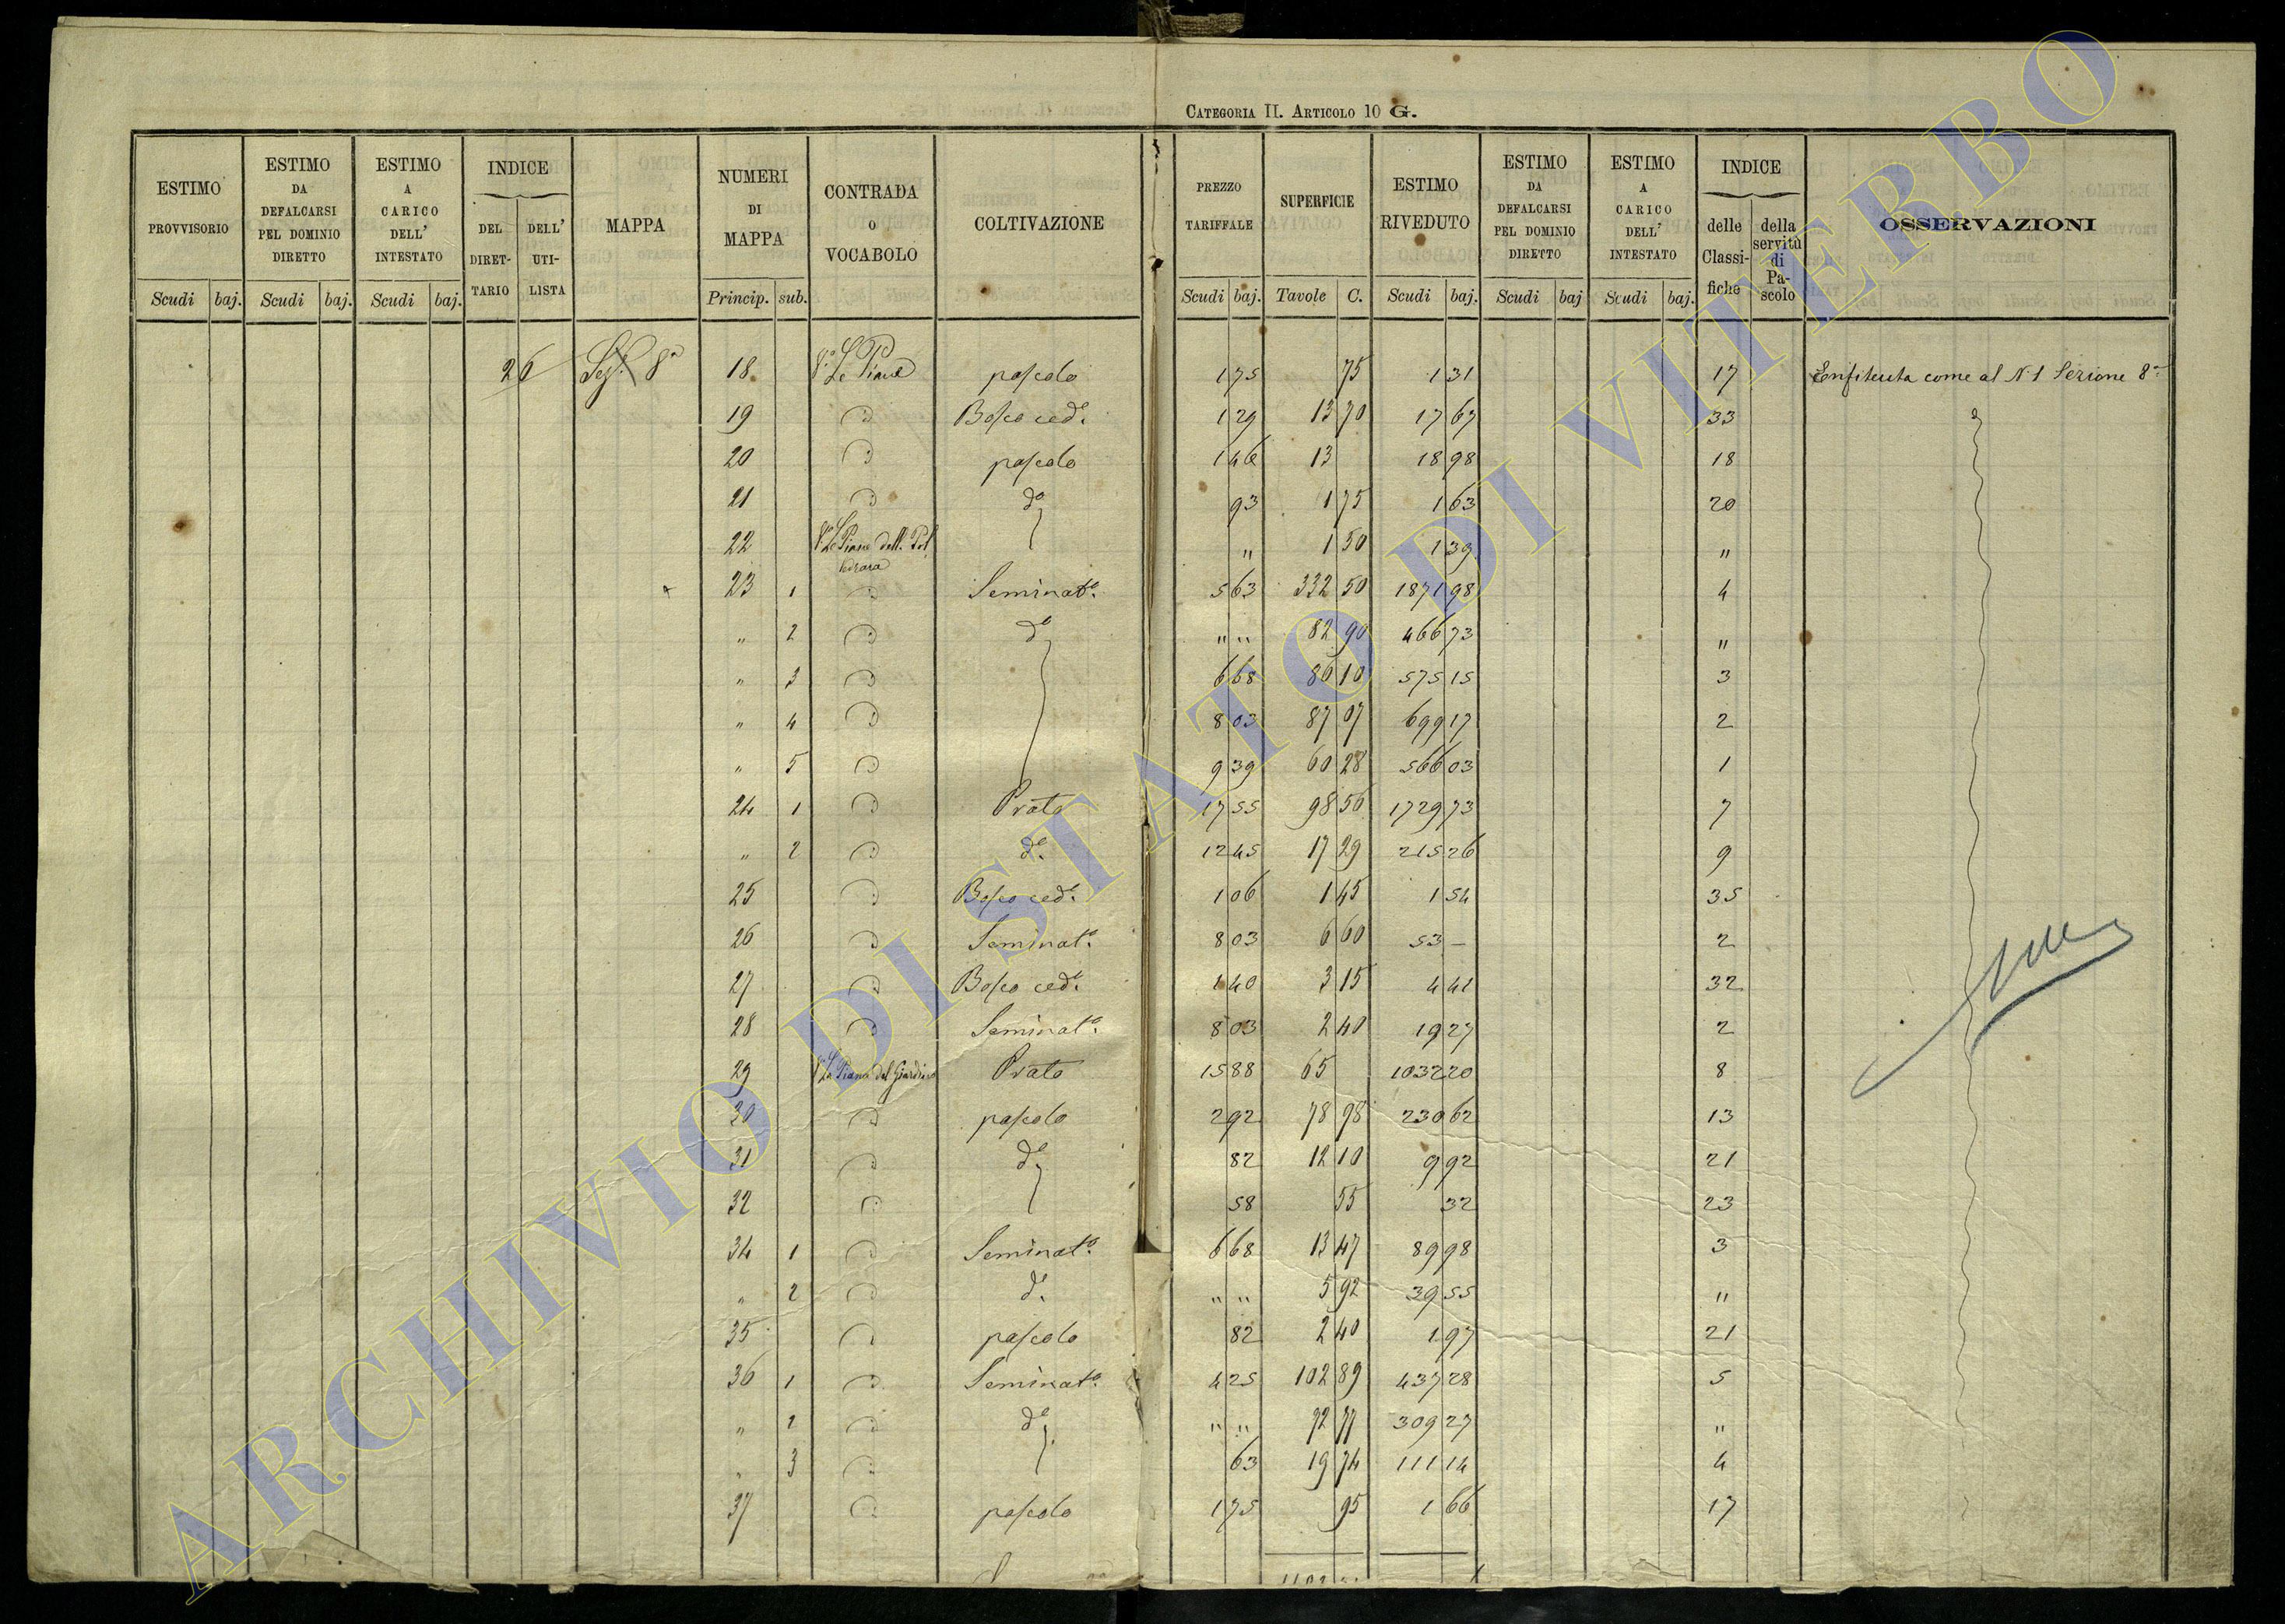 CATEGORIA II. ARTICOLO 10 G.
ESTIMO PROVVISORIO | ESTIMO DA DEFALCARSI PEL DOMINIO DIRETTO | ESTIMO A CARICO DELL' INTESTATO | INDICE DEL DIRETTARIO | DELL' UTILISTA | MAPPA | NUMERI DI MAPPA | CONTRADA O VOCABOLO | COLTIVAZIONE | PREZZO TARIFFALE | SUPERFICIE | ESTIMO RIVEDUTO | ESTIMO DA DEFALCARSI PEL DOMINIO DIRETTO | ESTIMO A CARICO DELL' INTESTATO | INDICE delle Classifiche | della servitù di Pascolo | OSSERVAZIONI
Scudi baj. Scudi baj. Scudi baj. Princip. sub. Scudi baj. Tavole C. Scudi baj. Scudi baj Scudi baj.
26 Sez. 8a 18 Le Piane pascolo 1 75 75 1 31 17 Enfiteuta come al N 1 Sezione 8a
19 " Bosco ced. 1 29 13 70 17 67 33
20 " pascolo 1 46 13 18 98 18
21 " do 93 1 75 1 63 20
22 Le Piane dell. Pol ledrara " 1 50 1 39 "
23 1 " Seminato. 5 63 332 50 1871 98 4
" 2 " do " " 82 90 466 73 "
" 3 " 6 68 86 10 575 15 3
" 4 " 8 03 87 07 699 17 2
" 5 " 9 39 60 28 566 03 1
24 1 " Prato 17 55 98 56 1729 73 7
" 2 " do. 12 45 17 29 215 26 9
25 " Bosco ced. 1 06 1 45 1 54 35
26 " Seminato. 8 03 6 60 53 — 2
27 " Bosco ced. 1 40 3 15 4 41 32
28 " Seminato. 8 03 2 40 19 27 2
29 La Piana del Giardino Prato 15 88 65 1032 20 8
30 " pascolo 2 92 78 98 230 62 13
31 " do 82 12 10 9 92 21
32 " 58 55 32 23
34 1 " Seminato. 6 68 13 47 89 98 3
" 2 " do. " " 5 92 39 55 "
35 " pascolo 82 2 40 1 97 21
36 1 " Seminato. 4 25 102 89 437 28 5
" 2 " do " " 72 77 309 27 "
" 3 " 63 19 74 111 14 4
37 " pascolo 1 75 95 1 66 17
ARCHIVIO DI STATO DI VITERBO